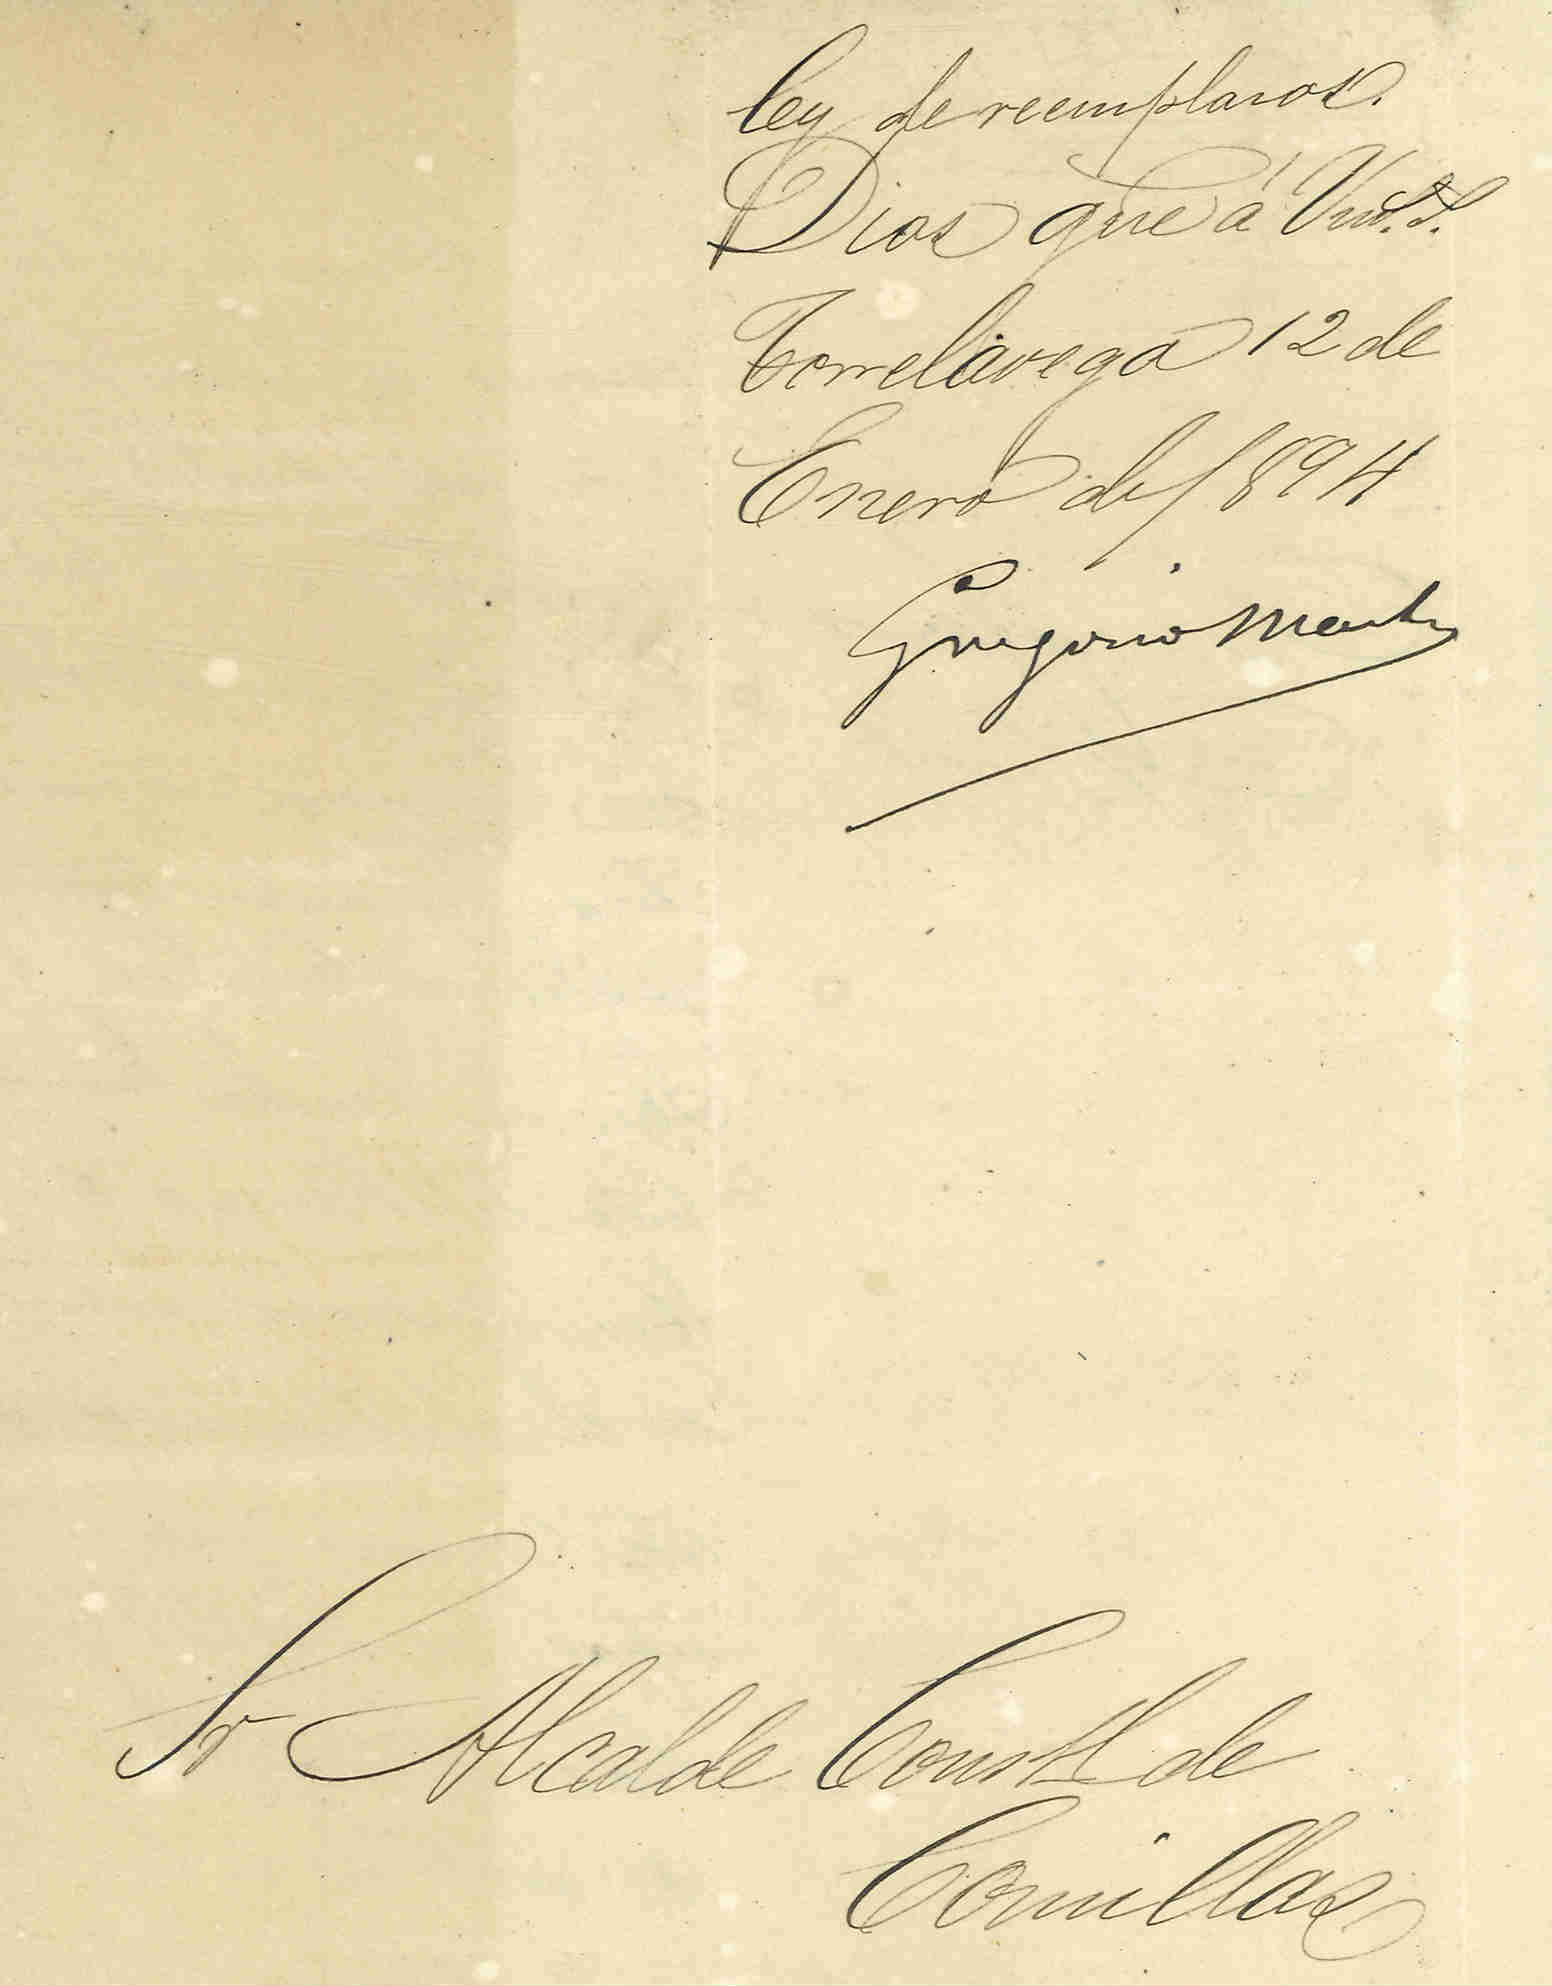 ley de reemplazos.
Dios gue á Vm. S.
Torrelavega 12 de
Enero de 1894
Gregorio
Sr Alcalde Constl de
Comillas